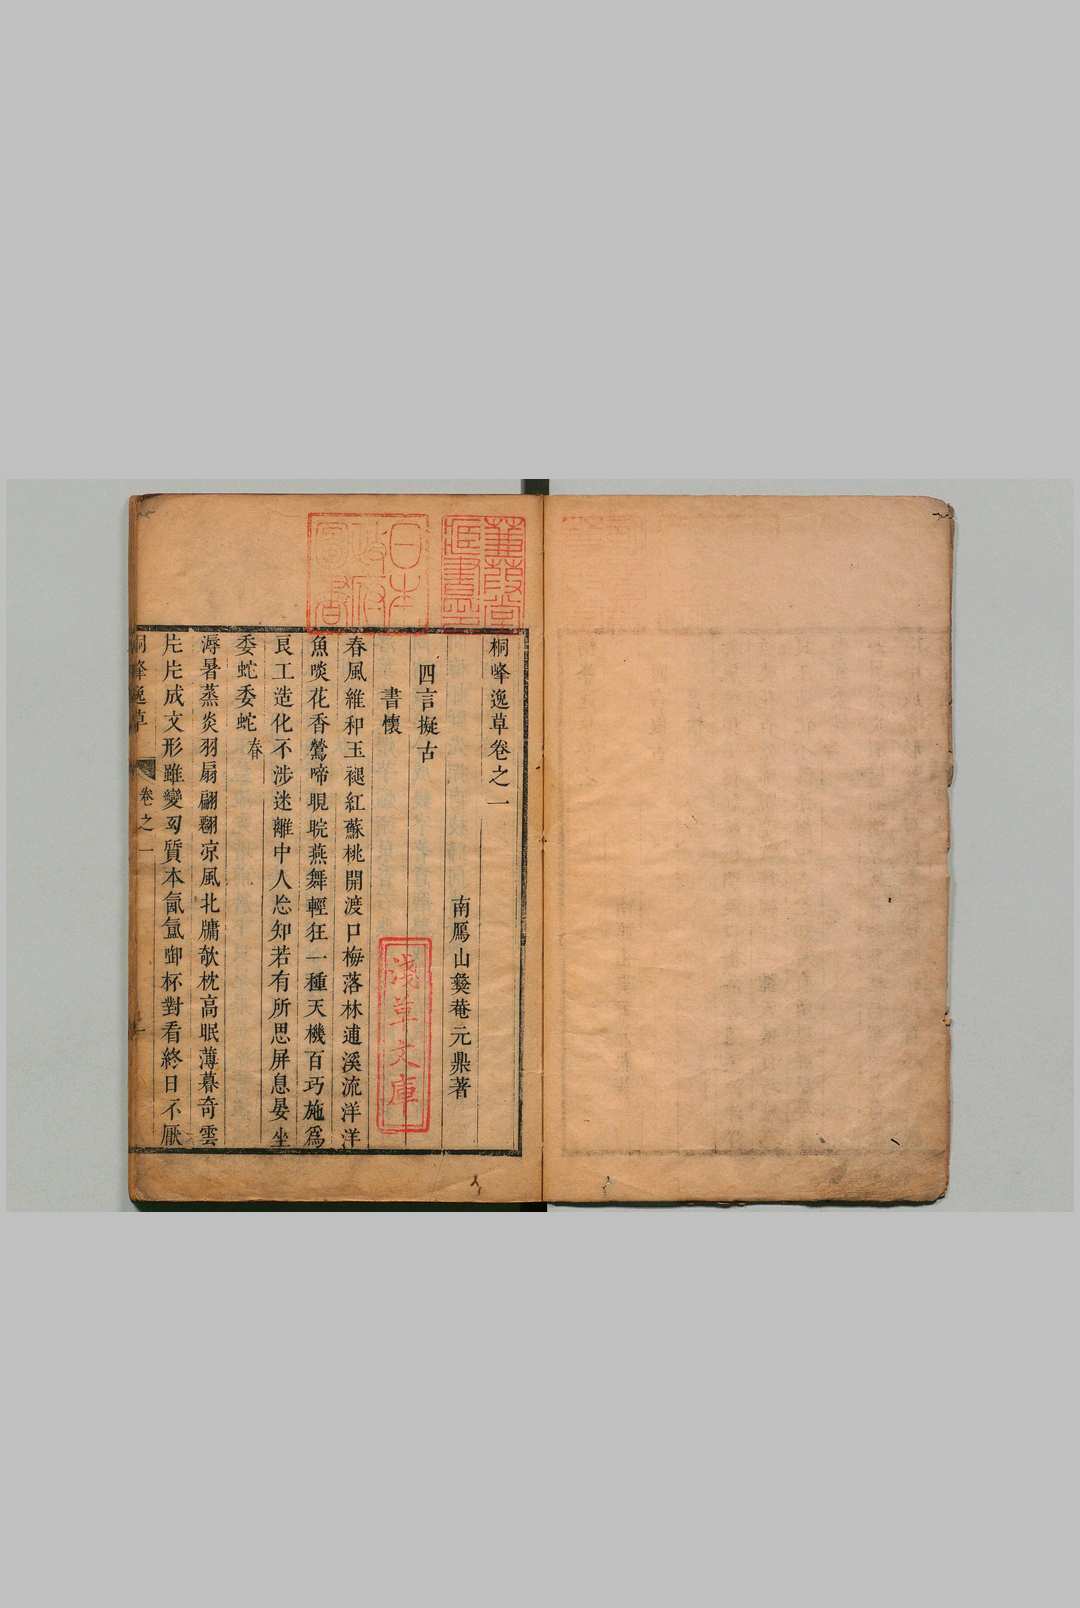 桐峰逸草卷之一
南鴈山燮菴元鼎著
四言擬古
書懷
春風維和玉褪紅蘇桃開渡口梅落林逋溪流洋洋
魚啖花香鶯啼睍睆燕舞輕狂一種天機百巧施爲
良工造化不涉迷離中人怂知若有所思屏息晏坐
委蛇委蛇春
溽暑蒸炎羽扇翩翾凉風北牗欹枕高眠薄暮奇雲
片片成文形雖變幻質本氤氳啣杯對看終日不厭
桐峰逸草
卷之一
蒹葭堂
藏書印
日本
政府
圖書
淺草文庫